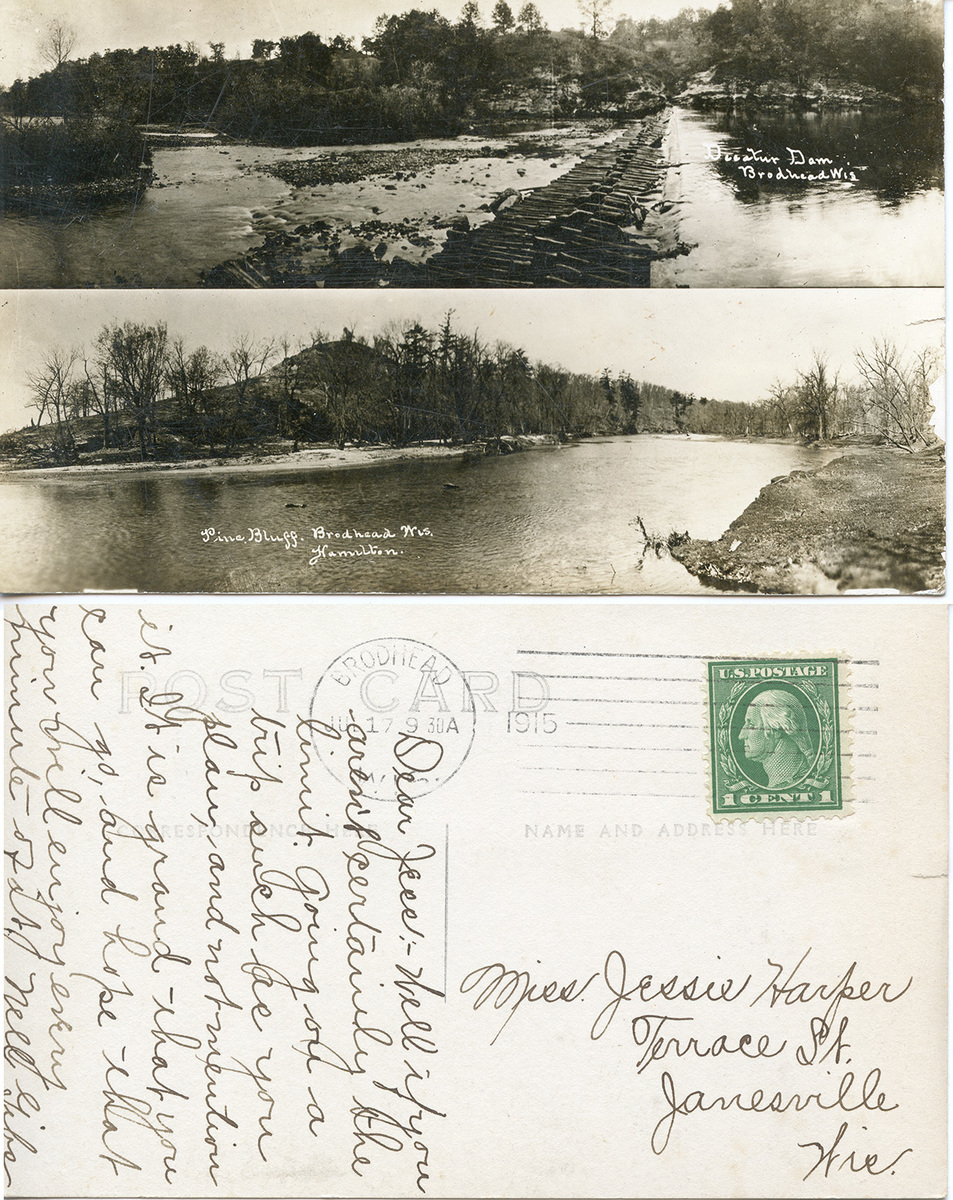 Decatur Dam
Brodhead Wis
Pine Bluff. Brodhead Wis.
Hamilton.
POST CARD
BRODHEAD
JUL 17 930A
WIS.
1915
U.S. POSTAGE
1 CENT 1
CORRESPONDENCE HERE
NAME AND ADDRESS HERE
Dear Jess:- Well if you
aren't certainly the
limit. Going on a
trip such as you
plan, and not mention
it. It is grand that you
can go, and hope that
you will enjoy every
minute of it. Nell &
Miss. Jessie Harper
Terrace St.
Janesville
Wis.